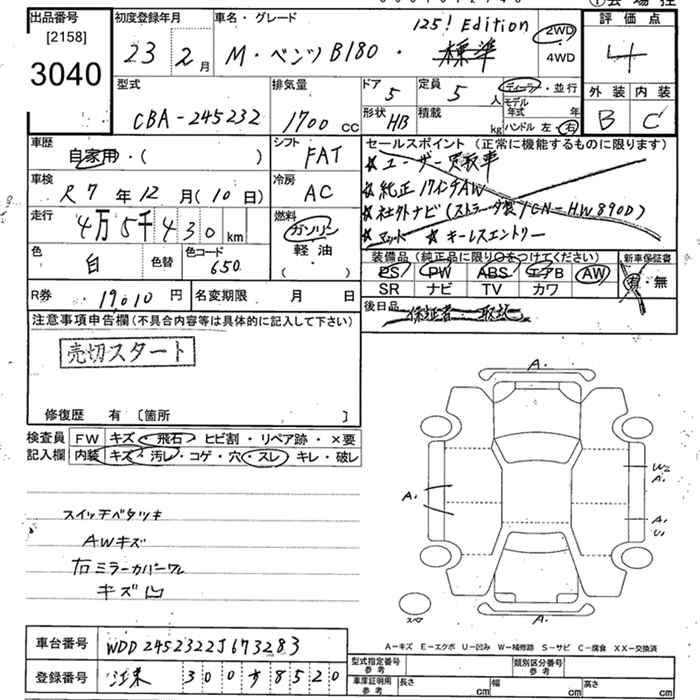 出品番号 初度登録年月 車名・グレード 125! Edition 評価点
[2158] 23年 2月 M・ベンツ B180・標準 2WD 4
3040 4WD
型式 排気量 ドア 定員 ディーラー・並行 外装 内装
CBA-245232 1700cc 5 5人 モデル年式 年 B C
形状 HB 積載 kg ハンドル 左・右
車歴 自家用・( ) シフト FAT セールスポイント (正常に機能するものに限ります)
★ユーザー買取車
車検 R7年12月(10日) 冷房 AC ★純正17インチAW
走行 4万5千430km 燃料 ガソリン ★社外ナビ(ストラーダ製/CN-HW890D)
色 白 色替 色コード 650 軽油・( ) ★マット ★キーレスエントリー
装備品 (純正品に限り○をつけてください) 新車保証書
PS PW ABS エアB AW 有・無
SR ナビ TV カワ
R券 19010円 名変期限 月 日 後日品 保証書 取説
注意事項申告欄(不具合内容等は具体的に記入して下さい)
売切スタート
修復歴 有 〔箇所 〕
検査員 FW キズ・飛石・ヒビ割・リペア跡・×要
記入欄 内装 キズ・汚レ・コゲ・穴・スレ・キレ・破レ
A.
A.
W2
A.
A.
U1
A.
スイッチベタツキ
AWキズ
右ミラーカバーワレ
キズ凹
スペア
A-キズ E-エクボ U-凹み W-補修跡 S-サビ C-腐食 XX-交換済
車台番号 WDD2452322J673283 型式指定番号 参考 類別区分番号 参考
登録番号 300 す 8520 車庫証明用 参考 長さ cm 幅 cm 高さ cm